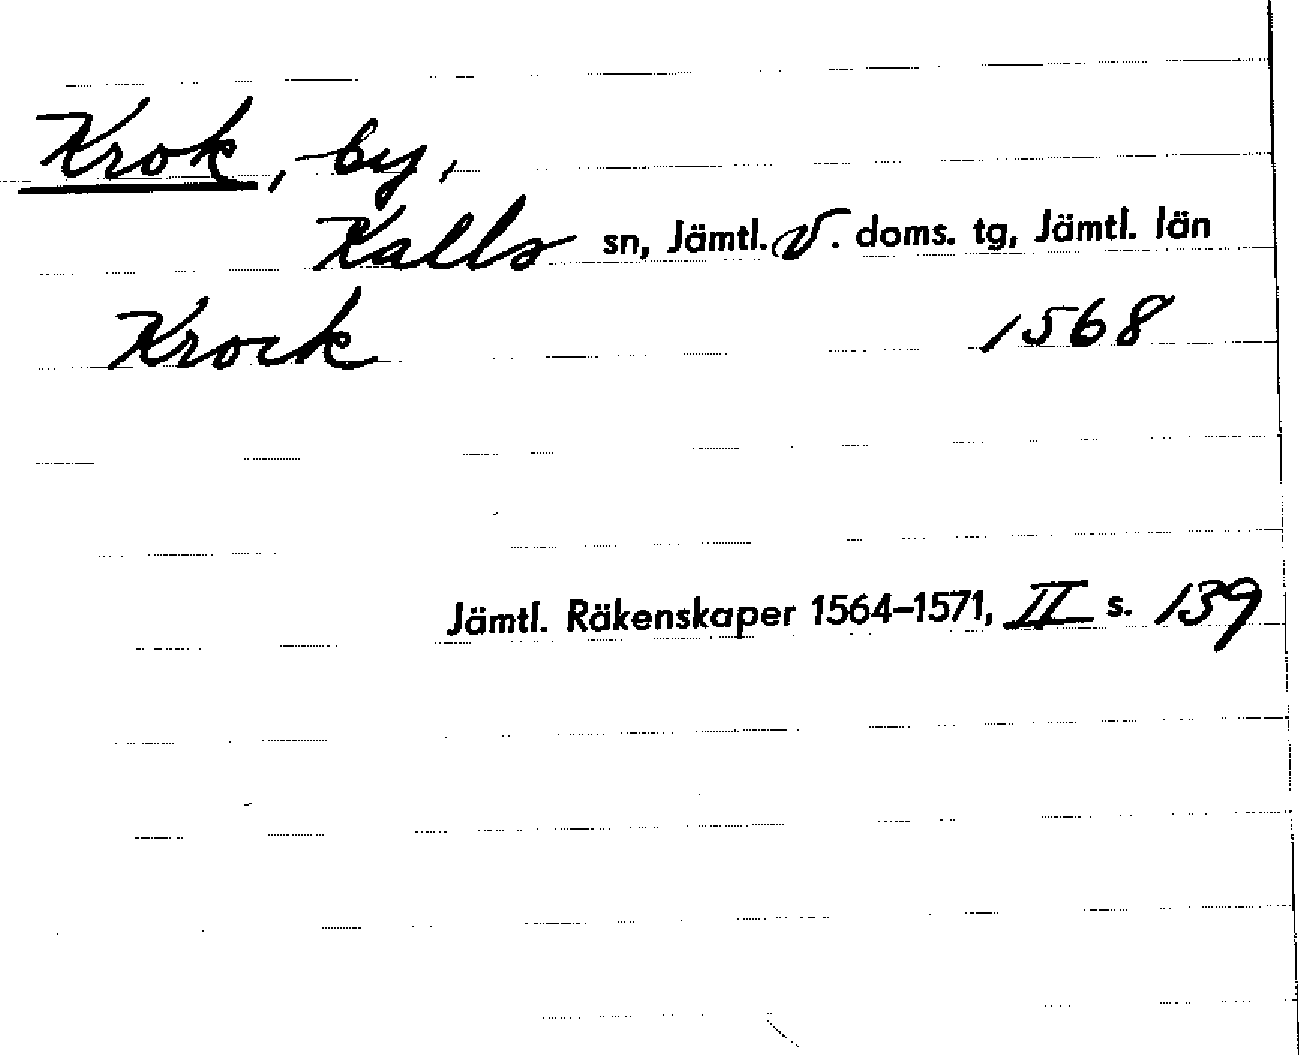 Krok, by,
Kalls sn, Jämtl. V. doms. tg, Jämtl. län
Krock 1568
Jämtl. Räkenskaper 1564–1571, II s. 139